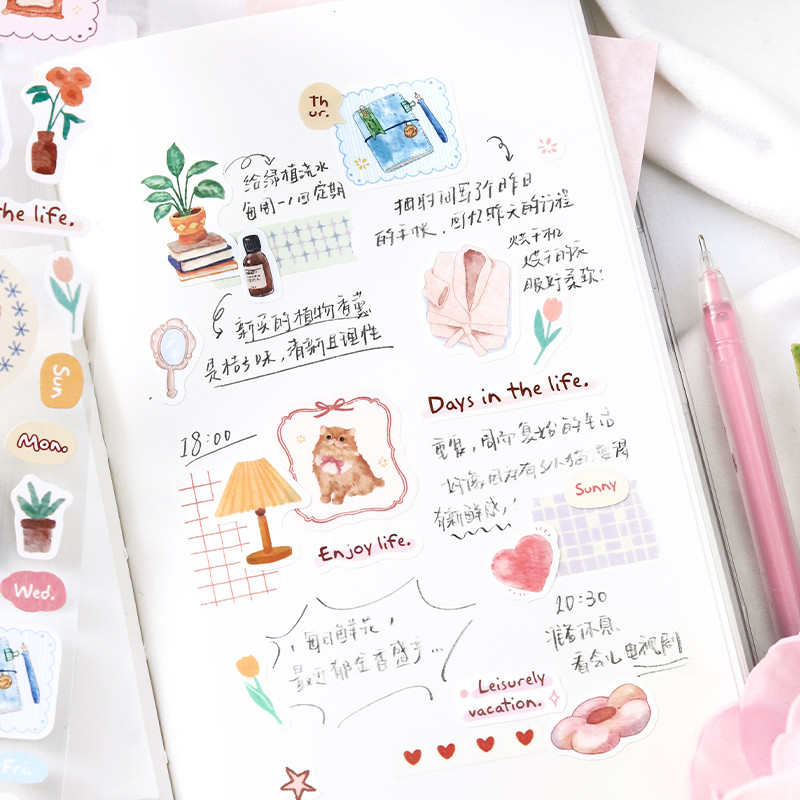 the life.
Sun
Mon.
Wed.
Fri.
Th
ur.
给绿植浇水
每周一/四定期
抽时间写了个昨日
的手帐，回忆昨天的行程
烘干机
烘干的衣
服好柔软！
新买的植物香薰
是桔子味，清新且理性
Days in the life.
18:00
重复，周而复始的生活
好像因为有了人猫，变得
有新鲜感！
Sunny
Enjoy life.
20:30
准备休息
看会儿电视剧
每日鲜花，
最近郁金香盛于...
Leisurely
vacation.